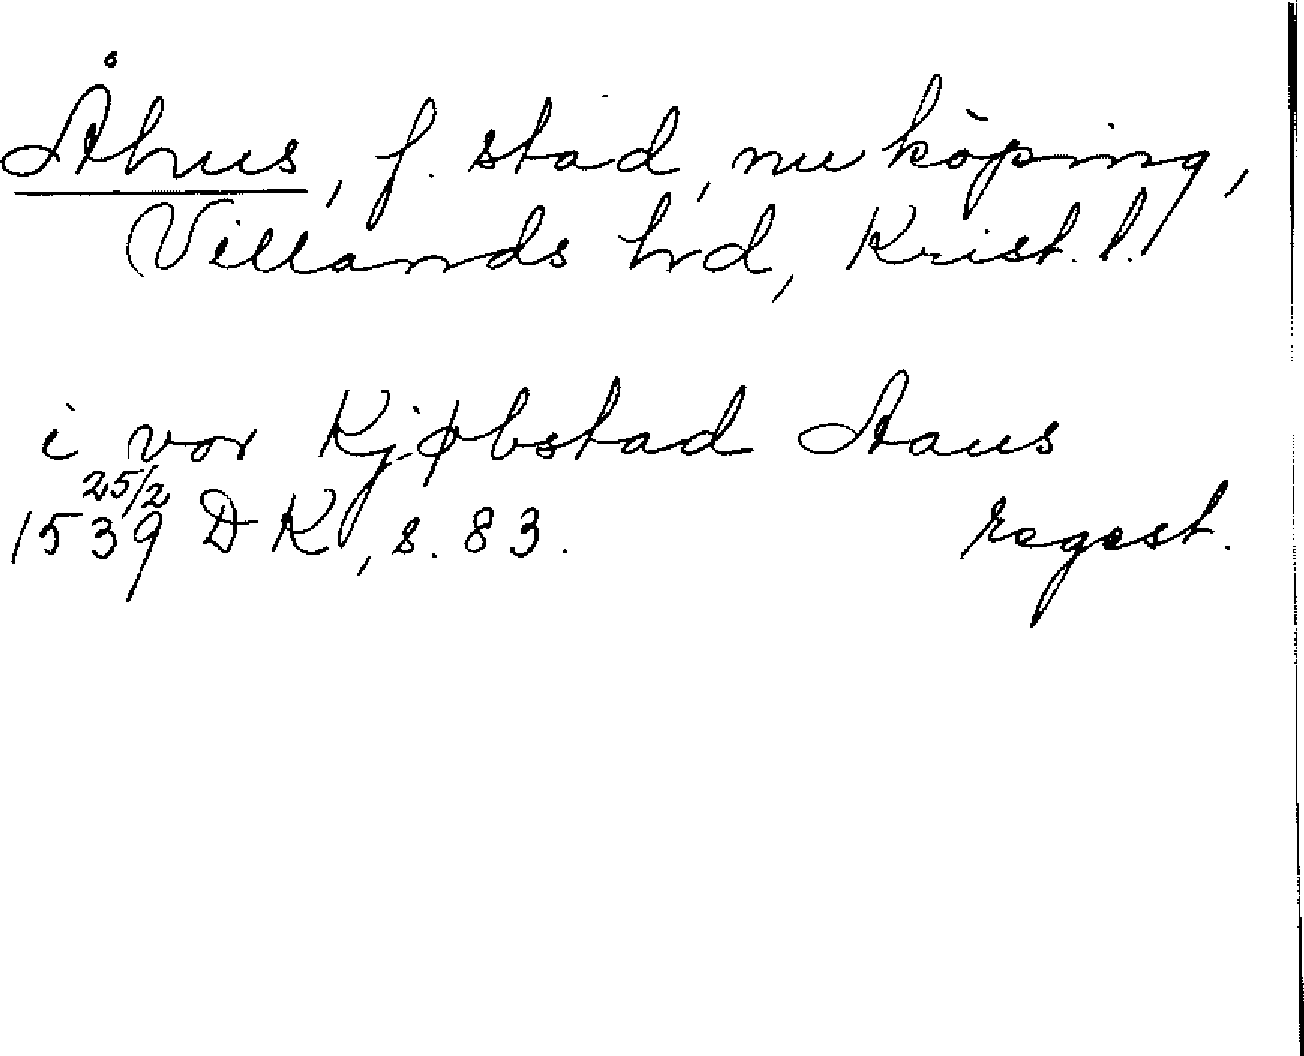 Åhus, f. stad, nu köping,
Villands hrd, Krist. l.
i vor Kjøbstad Aaus
25/2
1539 DK, s. 83. regest.